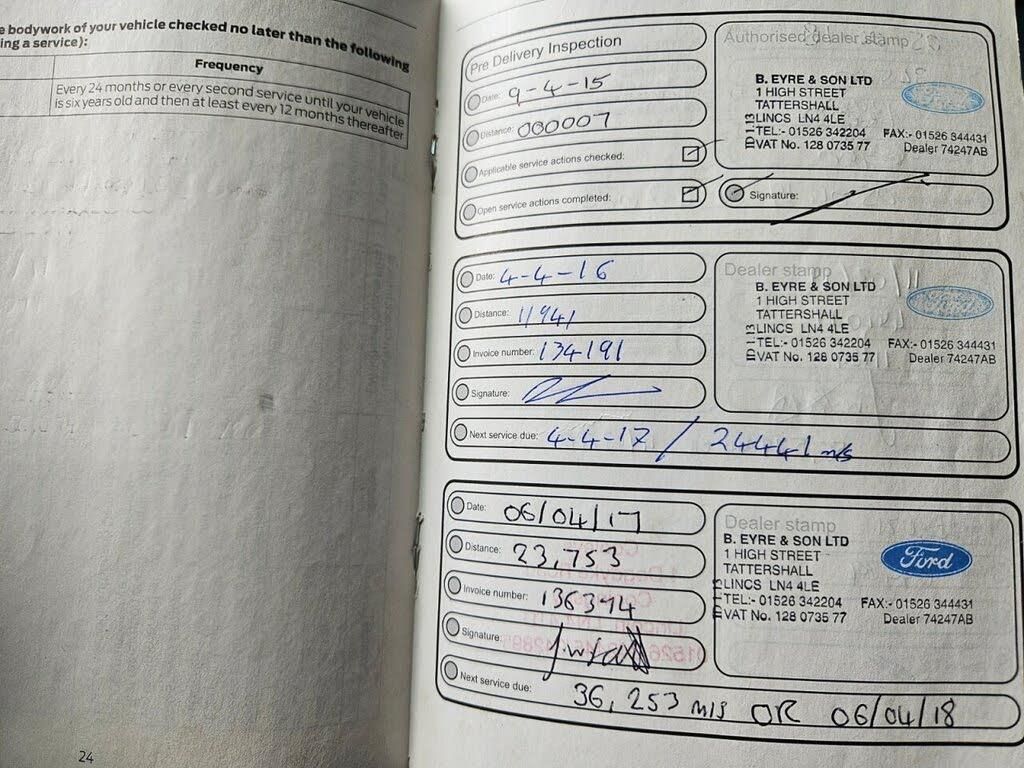 e bodywork of your vehicle checked no later than the following
ing a service):
Frequency
Every 24 months or every second service until your vehicle
is six years old and then at least every 12 months thereafter
24
Pre Delivery Inspection
Date: 9-4-15
Distance: 000007
Applicable service actions checked:
Open service actions completed:
Authorised dealer stamp
B. EYRE & SON LTD
1 HIGH STREET
TATTERSHALL
LINCS LN4 4LE
TEL:- 01526 342204 FAX:- 01526 344431
VAT No. 128 0735 77 Dealer 74247AB
Signature:
Date: 4-4-16
Distance: 11941
Invoice number: 134191
Signature:
Next service due: 4-4-17 / 24441 m/s
Dealer stamp
B. EYRE & SON LTD
1 HIGH STREET
TATTERSHALL
LINCS LN4 4LE
TEL:- 01526 342204 FAX:- 01526 344431
VAT No. 128 0735 77 Dealer 74247AB
Date: 06/04/17
Distance: 23,753
Invoice number: 136394
Signature:
Next service due: 36,253 m/s OR 06/04/18
Dealer stamp
B. EYRE & SON LTD
1 HIGH STREET
TATTERSHALL
LINCS LN4 4LE
TEL:- 01526 342204 FAX:- 01526 344431
VAT No. 128 0735 77 Dealer 74247AB
Ford